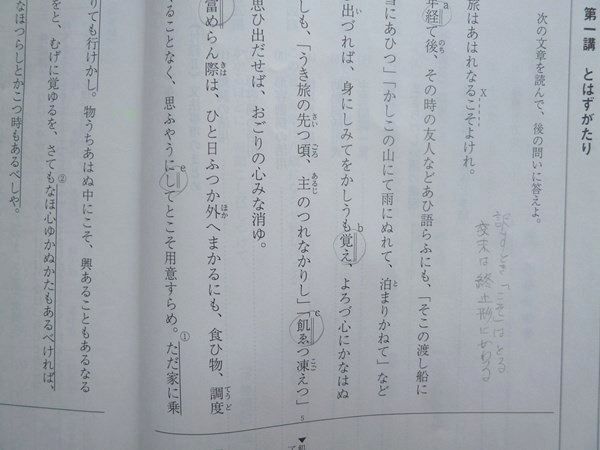 第一講　とはずがたり
次の文章を読んで、後の問いに答えよ。
訳すとき「こそ」はとる
文末は終止形にかわる
X
旅はあはれなるこそよけれ。
a
年経て後、その時の友人などあひ語らふにも、「そこの渡し船に
のち
にあひつ」「かしこの山にて雨にぬれて、泊まりかねて」など
と
b
出づれば、身にしみてをかしうも覚え、よろづ心にかなはぬ
い
c
しも、「うき旅の先つ頃、主のつれなかりし」「飢ゑつ凍えつ」
さい ごろ あるじ こご
5
思ひ出だせば、おごりの心みな消ゆ。
富めらん際は、ひと日ふつか外へまかるにも、食ひ物、調度
きは ほか てうど
e
ることなく、思ふやうにしてとこそ用意すらめ。ただ家に乗
①
りても行けかし。物うちあはぬ中にこそ、興あることもあるなる
をと、むげに覚ゆるを、さてもなほ心ゆかぬかたもあるべければ、
②
なほつらしとかこつ時もあるべしや。